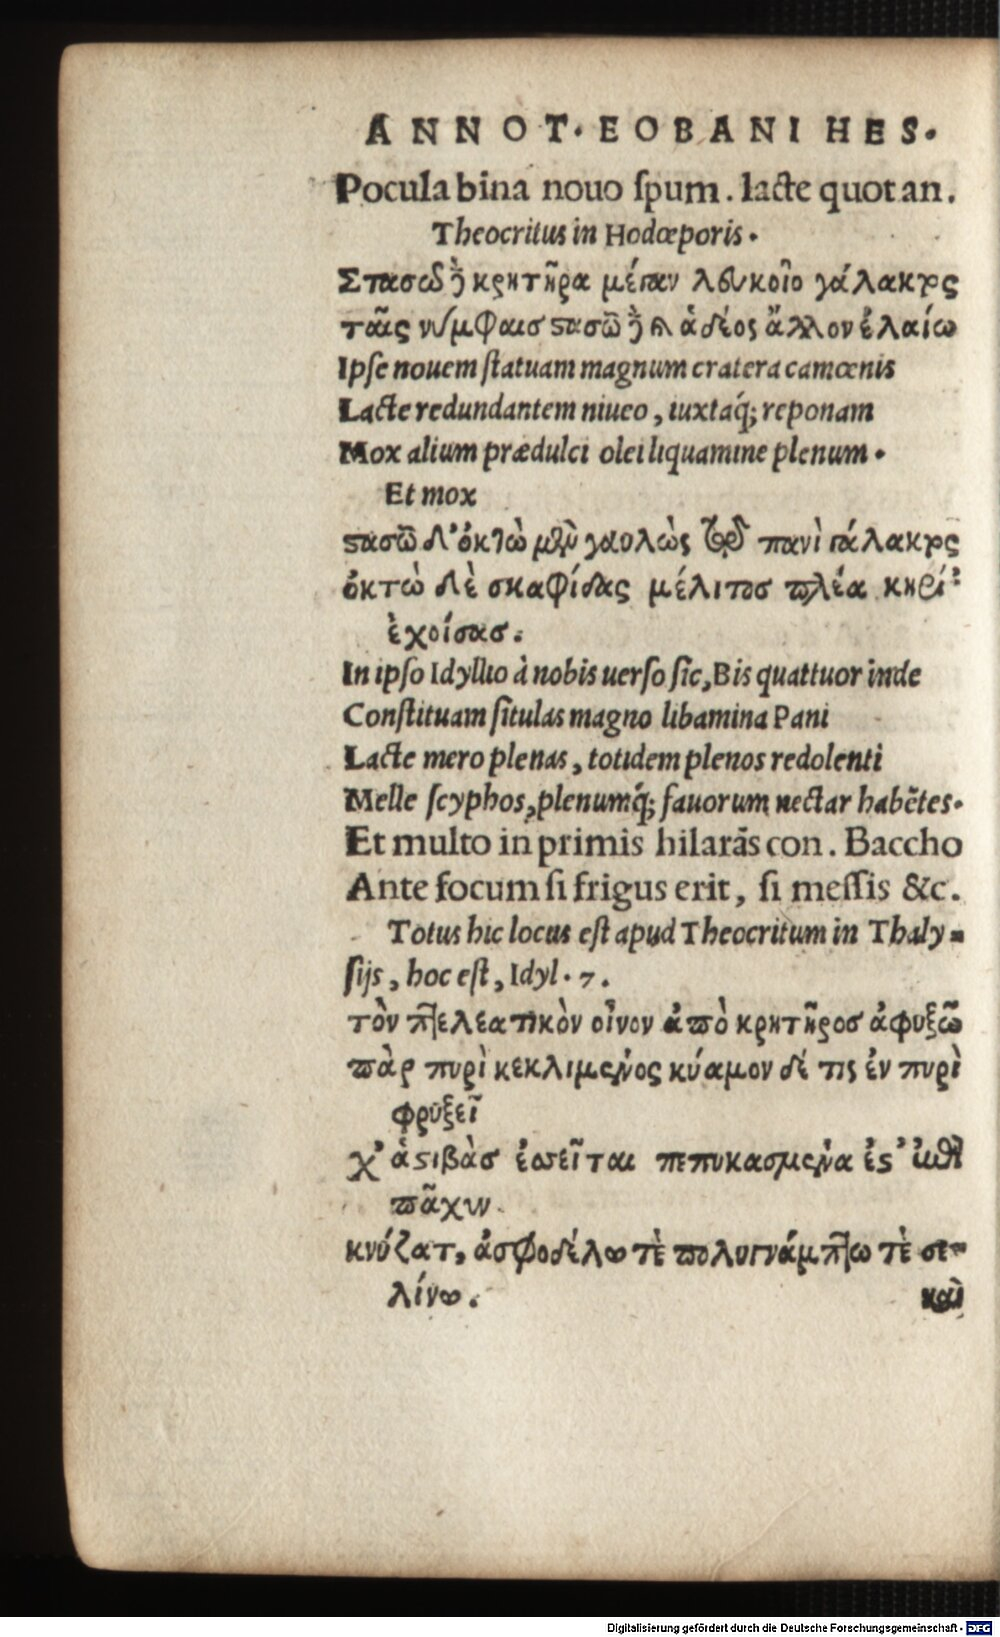 ANNOT. EOBANI HES.
Pocula bina nouo ſpum. lacte quot an.
Theocritus in Hodœporis.
Στασῶ δὲ κρητῆρα μέγαν λευκοῖο γάλακτος
ταῖς νύμφαισ στασῶ δὲ καὶ ἁδέος ἄλλον ἐλαίω
Ipſe nouem ſtatuam magnum cratera camœnis
Lacte redundantem niueo, iuxtaq́; reponam
Mox alium prædulci olei liquamine plenum.
Et mox
στασῶ δ' ὀκτὼ μὲν γαυλὼς τῷ πανὶ γάλακτος
ὀκτὼ δὲ σκαφίδας μέλιτοσ πλέα κηρί'
ἐχοίσασ.
In ipſo Idyllio à nobis uerſo ſic, Bis quattuor inde
Conſtituam ſitulas magno libamina Pani
Lacte mero plenas, totidem plenos redolenti
Melle ſcyphos, plenumq́; fauorum nectar habētes.
Et multo in primis hilarās con. Baccho
Ante focum ſi frigus erit, ſi meſſis &c.
Totus hic locus eſt apud Theocritum in Thaly-
ſijs, hoc eſt, Idyl. 7.
τὸν πτελεατικὸν οἶνον ἀπὸ κρητῆροσ ἀφυξῶ
πὰρ πυρὶ κεκλιμένος κύαμον δέ τις ἐν πυρὶ
φρυξεῖ
χ' ἁ στιβὰσ ἐσσεῖται πεπυκασμένα ἐστ' ἐπὶ
πᾶχυν
κνύζατ, ἀσφοδέλω τὲ πολυγνάμπτω τὲ σε-
λίνω.
καὶ
Digitalisierung gefördert durch die Deutsche Forschungsgemeinschaft - DFG